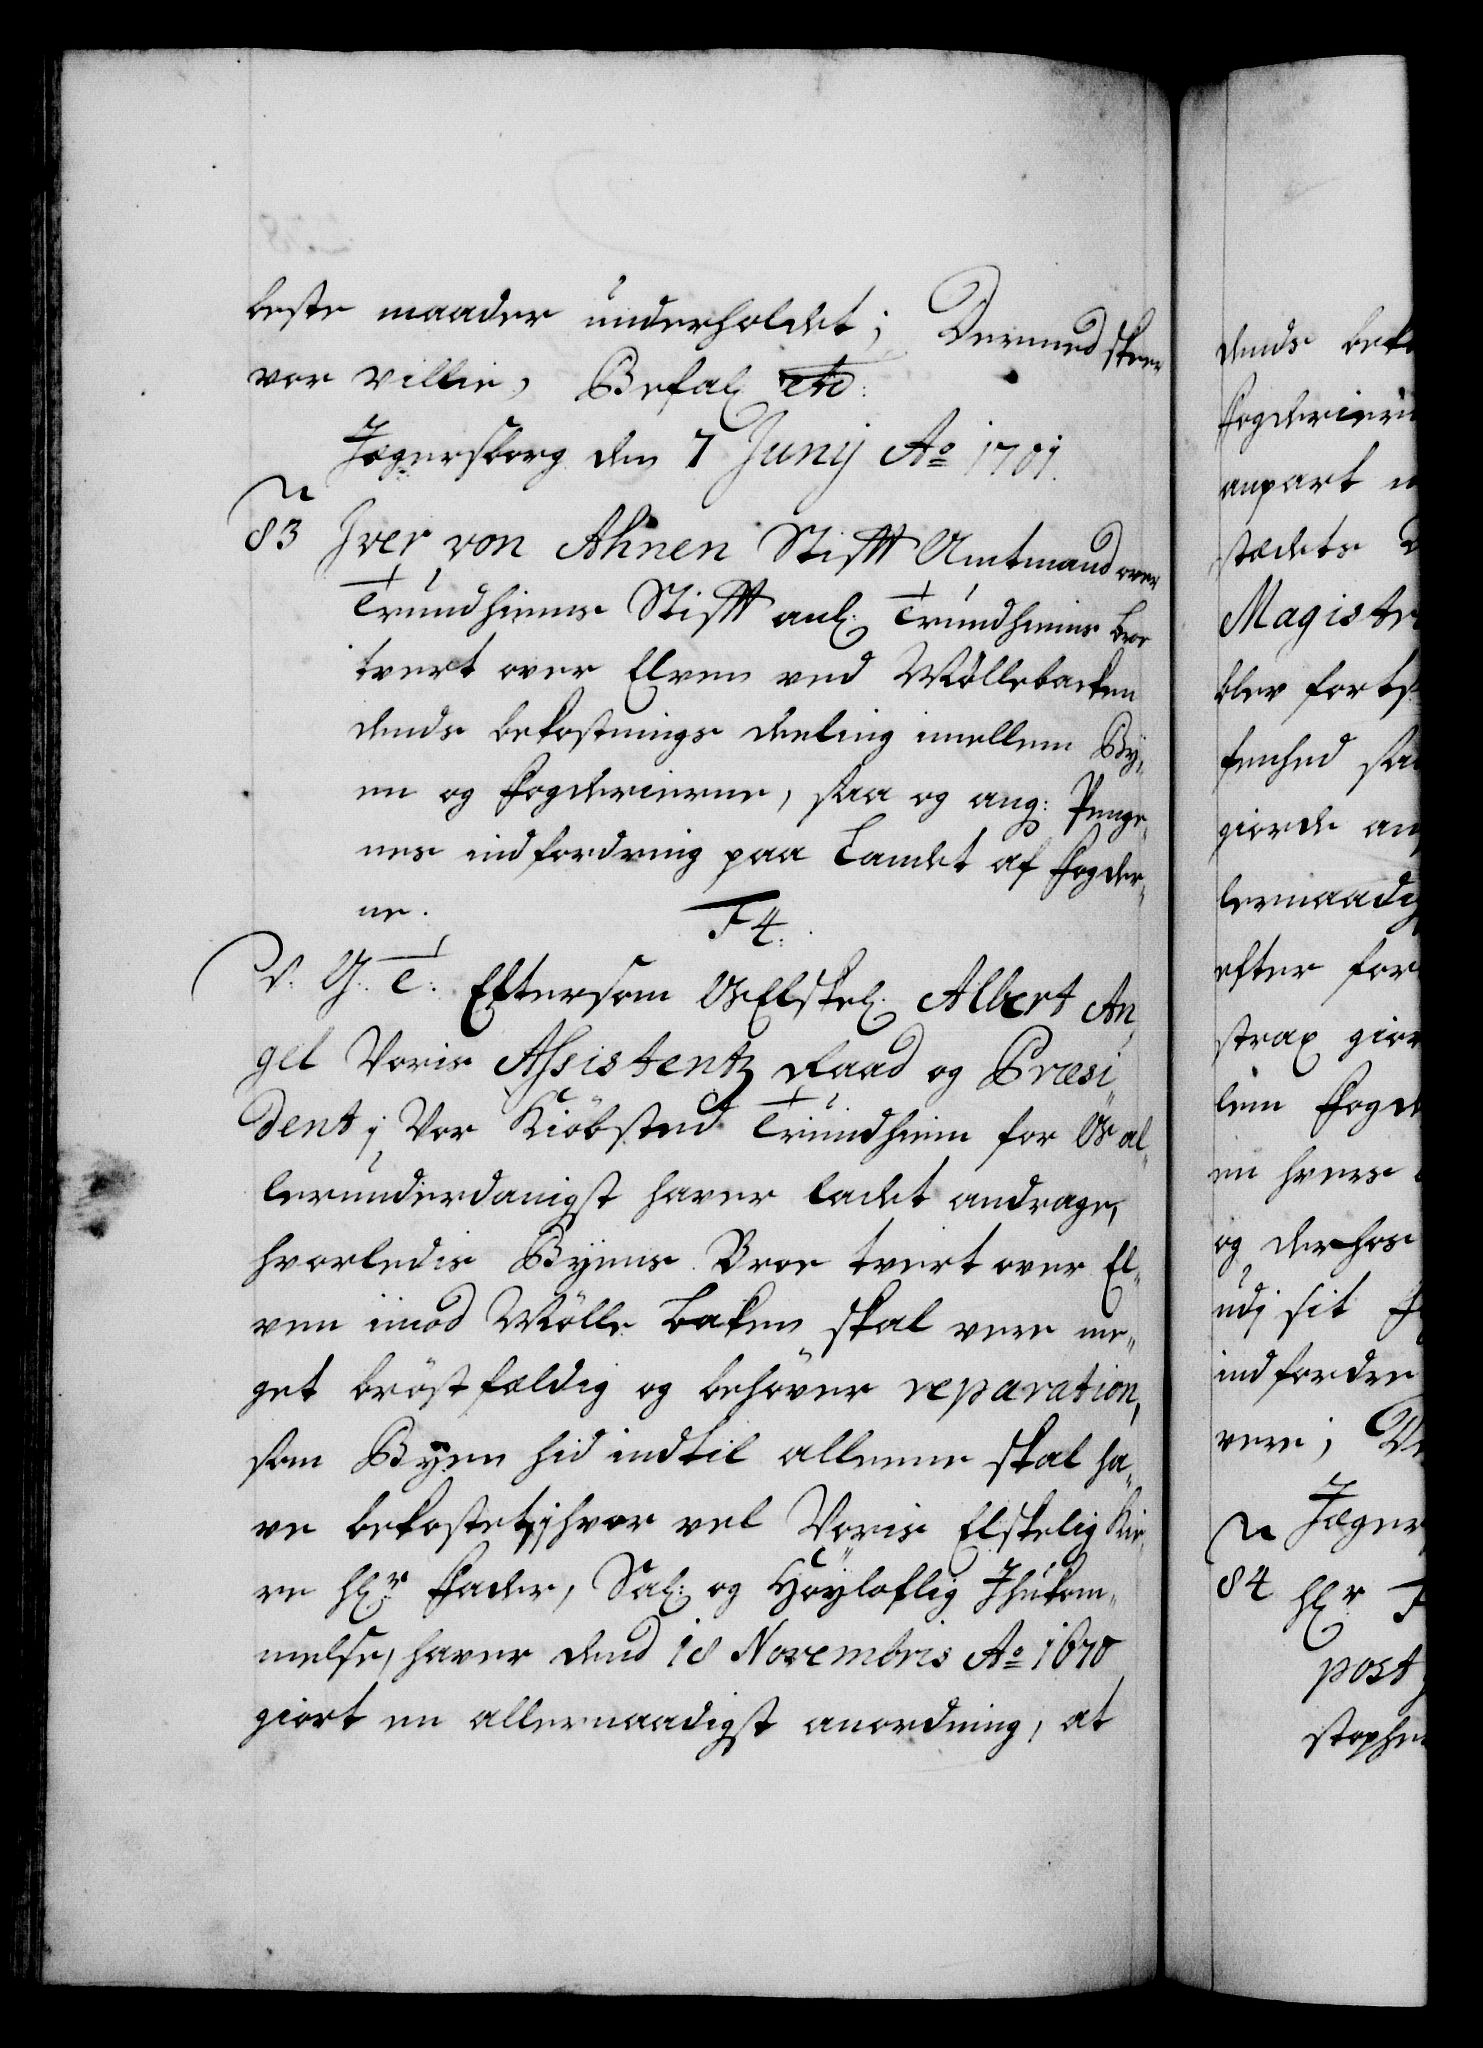 beste maader underholdet; Dermed skeer
vor villie, Befal: etc:
Jægersborg den 7 Junij Ao 1701.
N
83 Iver von Ahnen Stifft Amtmand over
Trundhiems Stifft anl: Trundhiems broe
tvert over Elven ved Møllebacken
dends bekostnings deeling imellem By„
en og Fogderierne, saa og ang: Penge„
nes indfordring paa Landet af Fogder„
ne.
F 4:
V. G. T: Eftersom Os Elskel: Albert An„
gel Voris Assistentz Raad og Præsi„
dent j Vor Kiöbsted Trundhiem for Os al„
lerunderdanigst haver ladet andrage,
hvorledis Byens Broe tvert over El„
ven imod Mölle backen skal vere me„
get bröstfældig og behöver reparation,
som Byen hid indtil alleene skal ha„
ve bekostet, ihvor vel Voris Elskelig Kie„
re Hr Fader, Sal: og Höyloflig Ihukom„
melse, haver dend 18 Novembris Ao 1670
giort en allernaadigst anordning, at
dends beko
Fogderiern
anpart
stædets
Magistr
blev forts
fenhed saa
giorde an
lernaadig
efter for
strax gior
lem Fogd
en hvers
og derhos
udj sit
indfordre
vere;
Jæger
N
84 Hr
post
stophe